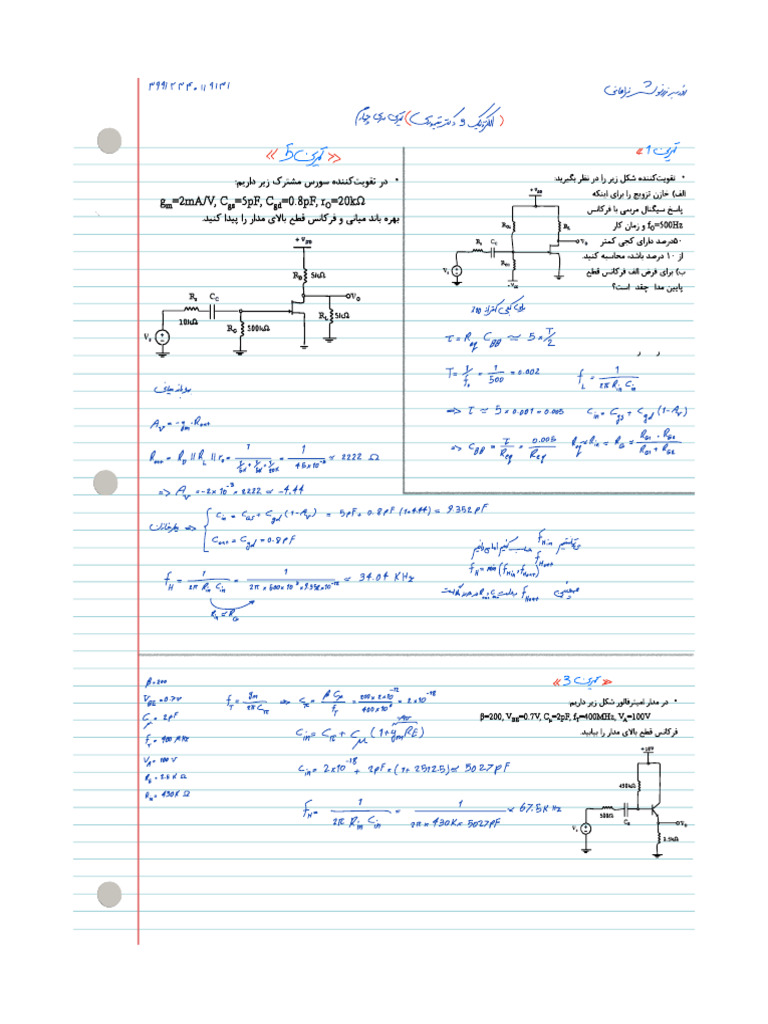 39912340119131
(الکترونیک و دکتر
« تمرین 1 »
• تقویت‌کننده شکل زیر را در نظر بگیرید:
الف) خازن تزویج را برای اینکه
پاسخ سیگنال مربعی با فرکانس
f₀=500Hz و زمان کار
۵۰درصد دارای کجی کمتر
از ۱۰ درصد باشد، محاسبه کنید.
ب) برای فرض الف فرکانس قطع
پایین مدار چقدر است؟
+V_DD
R_G1
R_L
V_O
R_s
C_C
V_s
R_G2
-V_SS
τ = R_eq C_BB ≈ 5 × T/2
T = 1/f₀ = 1/500 = 0.002
f_L = 1/(2π R_in C_in)
=> τ ≈ 5 × 0.001 = 0.005
C_in = C_gs + C_gd (1-A_v)
=> C_BB = τ/R_eq = 0.005/R_eq
R_eq ≈ R_in ≈ R_G = (R_G1 · R_G2)/(R_G1 + R_G2)
« تمرین 5 »
• در تقویت‌کننده سورس مشترک زیر داریم:
g_m=2mA/V, C_gs=5pF, C_gd=0.8pF, r_O=20kΩ
بهره باند میانی و فرکانس قطع بالای مدار را پیدا کنید.
+ V_DD
R_D 5kΩ
V_O
R_s C_C
10kΩ
R_G 500kΩ
R_L 5kΩ
V_s
A_v = -g_m · R_out
R_out = R_D || R_L || r_o = 1/(1/5k + 1/5k + 1/20k) = 1/(45×10⁻⁵) ≈ 2222 Ω
=> A_v = -2×10⁻³ × 2222 ≈ -4.44
=> C_in = C_GS + C_gd (1-A_v) = 5pF + 0.8pF (1+4.44) = 9.352pF
C_out = C_gd = 0.8pF
f_H = 1/(2π R_in C_in) = 1/(2π × 500×10³ × 9.352×10⁻¹²) ≈ 34.04 KHz
R_in ≈ R_G
f_Hin
f_Hout
f_H = min(f_Hin, f_Hout)
« تمرین 3 »
• در مدار امیترفالور شکل زیر داریم:
β=200, V_BE=0.7V, C_μ=2pF, f_T=400MHz, V_A=100V
فرکانس قطع بالای مدار را بیابید.
+10V
430kΩ
500Ω
C_B
V_s
V_O
2.5kΩ
β = 200
V_BE = 0.7V
C_μ = 2pF
f_T = 400 MHz
V_A = 100 V
R_E = 2.5 K Ω
R_B = 430K Ω
f_T = g_m/(2π C_π) => C_π = β C_μ/f_T = (200 × 2×10⁻¹²)/(400×10⁶) = 2×10⁻¹⁸
C_in = C_π + C_μ (1+g_m RE)
C_in = 2×10⁻¹⁸ + 2pF × (1+2512.5) ≈ 5027pF
f_H = 1/(2π R_in C_in) = 1/(2π × 430K × 5027pF) ≈ 67.5K Hz